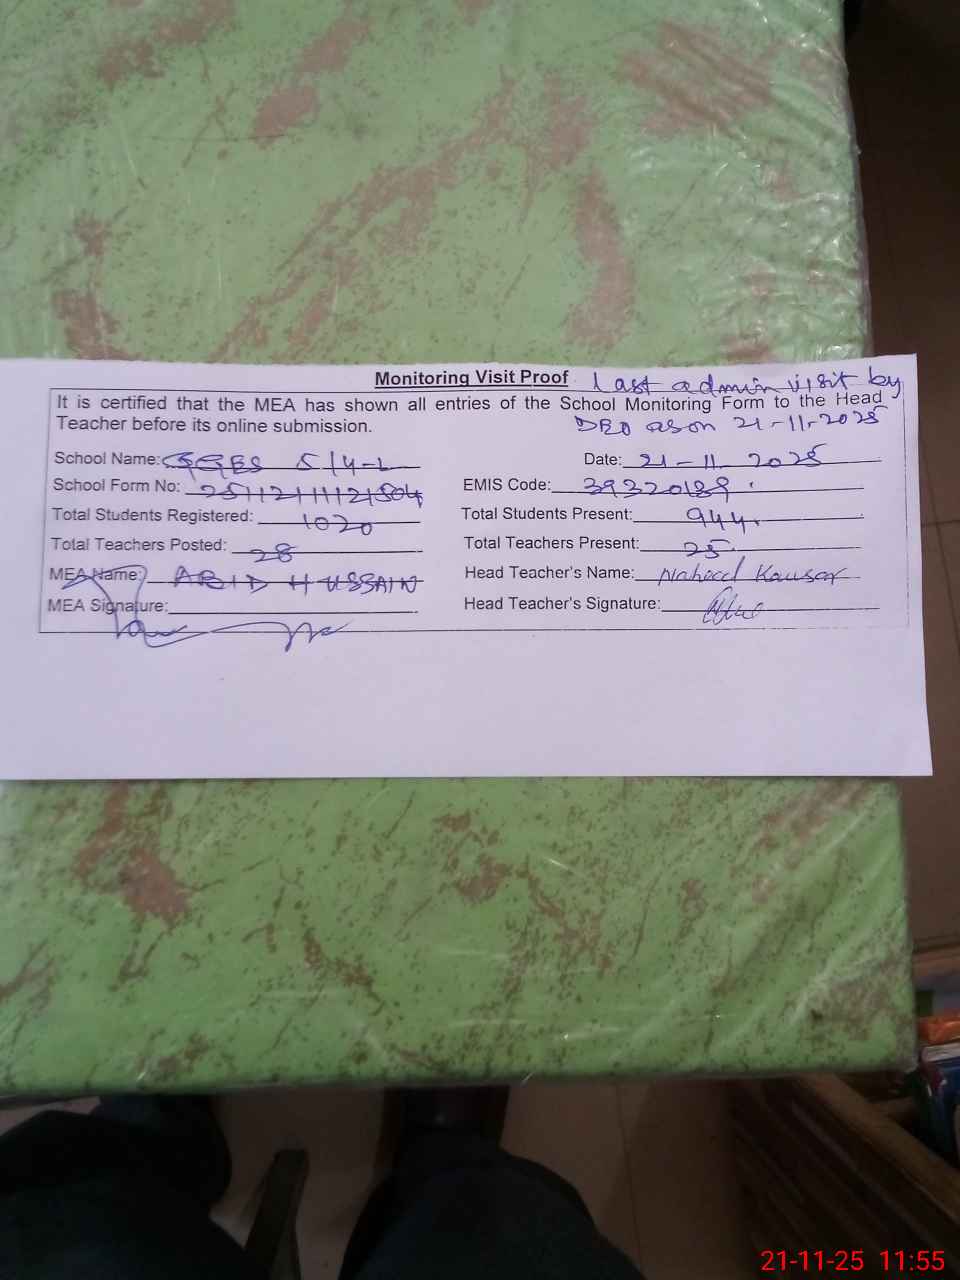 Monitoring Visit Proof Last admin visit by
It is certified that the MEA has shown all entries of the School Monitoring Form to the Head
Teacher before its online submission. DEO as on 21-11-2025
School Name: GGES 5/4-L Date: 21-11-2025
School Form No: EMIS Code: 39320189
Total Students Registered: 1020 Total Students Present: 944
Total Teachers Posted: 28 Total Teachers Present: 25
MEA Name: ABID HUSSAIN Head Teacher's Name: Naheed Kausar
MEA Signature: Head Teacher's Signature:
21-11-25 11:55